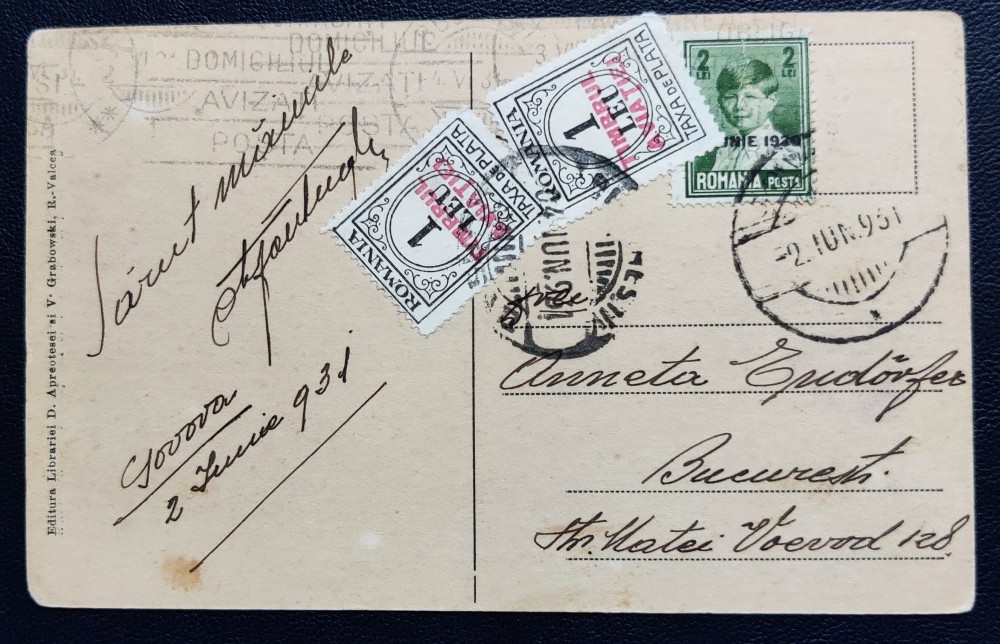 DOMICILIUL
AVIZAȚI
POȘTA
DOMICILIUL
Sărut mâinile
Govora
2 Iunie 931
Editura Librariei D. Apreotesei si V. Grabowski, R.-Valcea
ROMANIA
TAXA DE PLATA
1 LEU
TIMBRUL
AVIATIEI
ROMANIA
TAXA DE PLATA
1 LEU
TIMBRUL
AVIATIEI
2 LEI
2 LEI
IUNIE 1930
ROMANIA POSTA
-2. IUN. 931
IUN. 931
Anneta Endörfer
Bucuresti.
Str. Matei Voevod 128